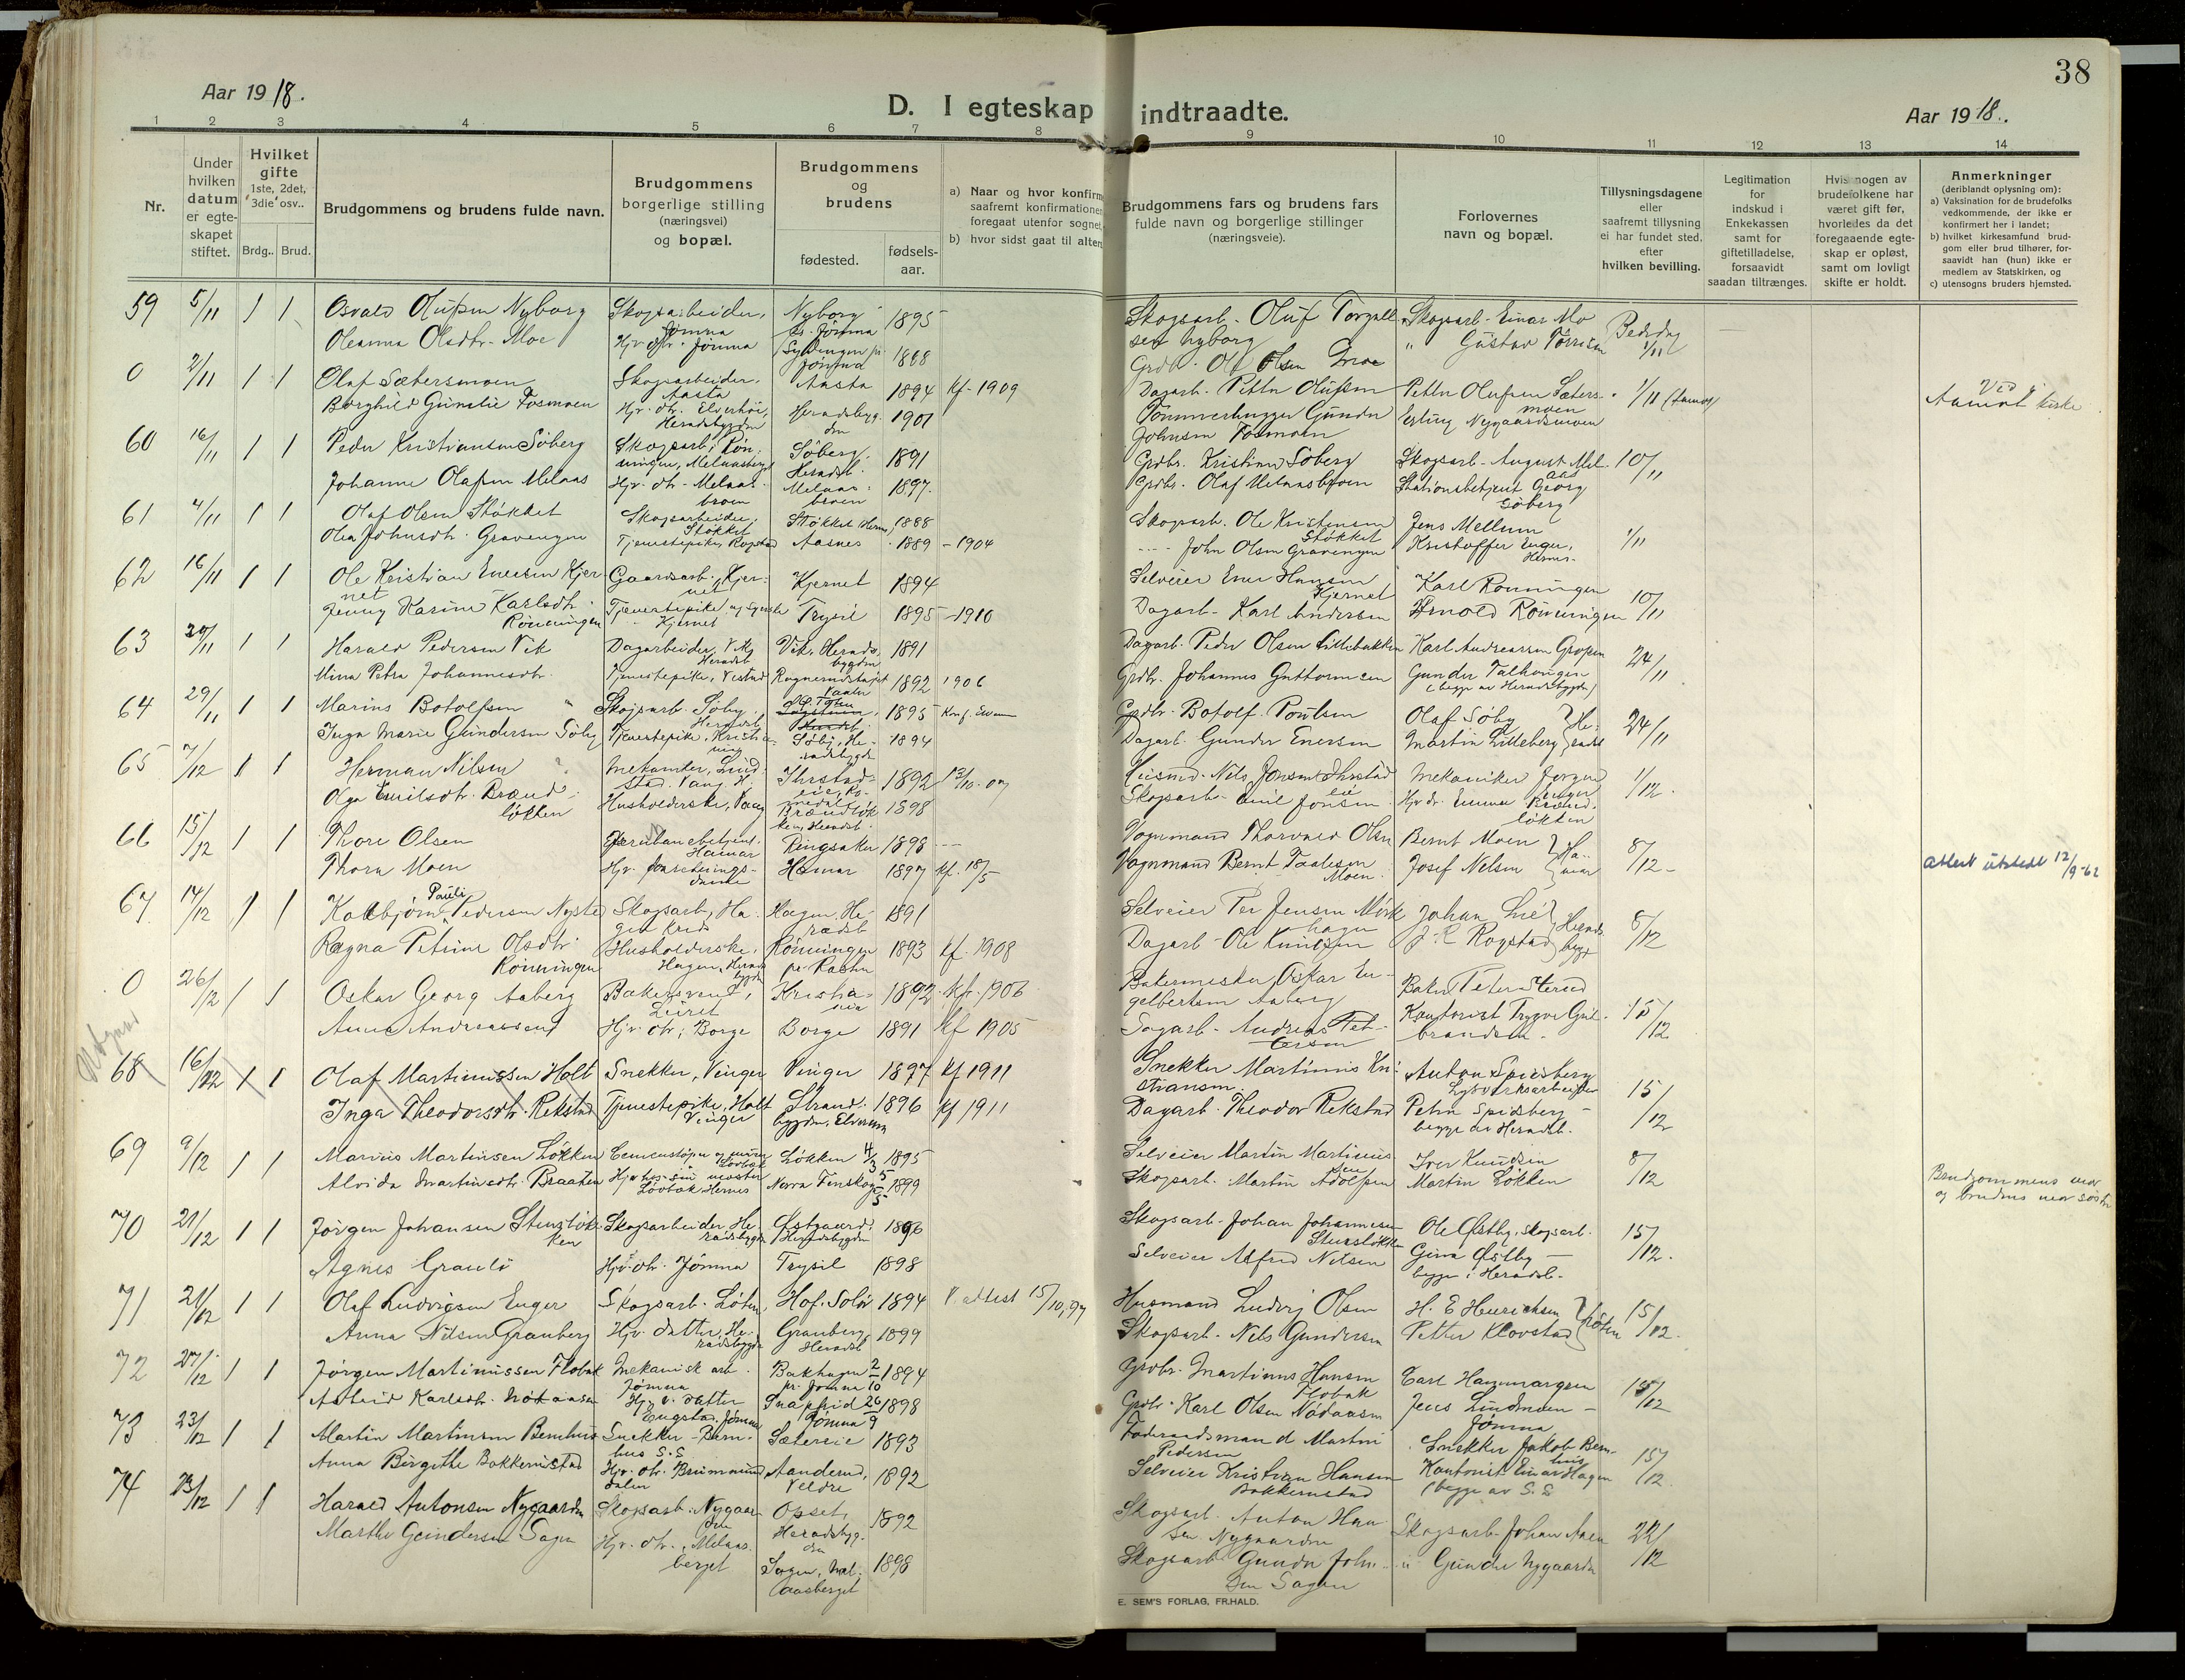 38
Aar 1918.
D. I egteskap indtraadte.
Aar 1918.
1 2 3 4 5 6 7 8 9 10 11 12 13 14
Nr.
Under hvilken datum er egteskapet stiftet.
Hvilket gifte 1ste, 2det, 3die osv..
Brdg.. Brud.
Brudgommens og brudens fulde navn.
Brudgommens borgerlige stilling (næringsvei) og bopæl.
Brudgommens og brudens
fødested.
fødsels-aar.
a) Naar og hvor konfirm
saafremt konfirmationen
foregaat utenfor sognet,
b) hvor sidst gaat til alters
Brudgommens fars og brudens fars fulde navn og borgerlige stillinger (næringsveie).
Forlovernes navn og bopæl.
Tillysningsdagene eller saafremt tillysning ei har fundet sted. efter hvilken bevilling.
Legitimation for indskud i Enkekassen samt for giftetilladelse, forsaavidt saadan tiltrænges.
Hvis nogen av brudefolkene har været gift før, hvorledes da det foregaaende egteskap er opløst, samt om lovligt skifte er holdt.
Anmerkninger
(deriblandt oplysning om):
a) Vaksination for de brudefolks vedkommende, der ikke er konfirmert her i landet;
b) hvilket kirkesamfund brudgom eller brud tilhører, forsaavidt han (hun) ikke er medlem av Statskirken, og
c) utensogns bruders hjemsted.
59 5/11 1 1 Osvald Olufsen Nyborg Skogsarbeider, Jømna Nyborg pr. Jømna 1895 Skogsarb. Oluf Skogsarb. Einar Mo Bedsdag 1/11
Oleanna Olsdtr. Moe Hjv. dtr. Jømna 1888 Grdbr. Ole Olsen Moe " Gustav
0 2/11 1 1 Olaf Sætersmoen Skogsarbeider, Aasta Aasta 1894 Kf. 1909 Dagarb. Petter Olufsen Petter Olufsen Sætersmoen 1/11 Ved Aamot kirke
Borghild Gunelie Fosmoen Hjv. dtr. Elverhöi, Heradsbygden Heradsbygden 1901 Tømmerhugger Gunder Johnsen Fosmoen Erling Nygaardsmoen
60 16/11 1 1 Peder Kristiansen Söberg Skogsarb. Söberg Heradsb. 1891 Grdbr. Kristian Söberg Skogsarb. August Melaas 10/11
Johanne Olafsen Melaas Hjv. dtr. Melaasbroen Melaasbroen 1897 Grdbr. Olaf Melaasbroen Stationsbetjent Georg Söberg
61 4/11 1 1 Olaf Olsen Støkket Skogsarbeider, Støkket Støkket 1888 Skogsarb. Ole Kristensen Støkket Jens Mellum 1/11
Olea Johnsdtr. Gravengen Tjenestepike, Rogstad Aasnes 1889 - 1904 John Olsen Gravengen Kristoffer Enger, Hernes.
62 16/11 1 1 Ole Kristian Enersen Kjernet Gaardsarb. Kjernet Kjernet 1894 Selveier Ener Hansen Kjernet Karl Rønningen 10/11
Jenny Karine Karlsdtr. Rønningen Tjenestepike Kjernet Trysil 1895 - 1910 Dagarb. Karl Andersen Arnold Rønningen
63 29/11 1 1 Harald Pedersen Vik Dagarbeider, Vik, Heradsb Vik, Heradsbygden 1891 Dagarb. Peder Olsen Lillebakken Karl Andreassen Gropen 24/11
Mina Petra Johannesdtr. Tjenestepike, Vestad 1892 1906 Grdbr. Johannes Guttormsen Gunder (begge av Heradsbygden)
64 29/11 1 1 Marius Botolfsen Skogsarb. Söby, Heradsb 1895 Grdbr. Botolf Poulsen Olaf Söby 24/11
Inga Marie Gundersen Söby Tjenestepike, Söby, Heradsbygd 1894 Dagarb. Gunder Enersen Martin Lilleberg
65 7/12 1 1 Herman Nilsen Mekaniker, Vang 1892 13/10-07 Husmd. Nils Jonsen Mekaniker Jørgen 1/12.
Olga Emilsdtr. Brændløkken Husholderske, Vang Brændløkken, Heradsb. 1898 Skogsarb. Emil Jonsen Hjv. dr. Emma Brændløkken
66 15/12 1 1 Thore Olsen Hamar Ringsaker 1898 Vognmand Thorvald Olsen Bernt Moen Hamar 8/12
Thora Moen Hjv. Hamar 1897 kf. 18/5 Vognmand Bernt Moen Josef Nelsen
Attest utstedt 12/9-62
67 14/12 1 1 Kolbjørn Pauli Pedersen Skogsarb, Hagen, Heradsb 1891 Selveier Per Jensen Mørkhagen Johan Lie Heradsbygd 8/12
Ragna Petrine Olsdtr. Rønningen Husholderske, Hagen, Heradsbygden Rønningen 1893 kf. 1908 Dagarb. Ole Knudsen J. R. Rogstad
0 26/12 1 1 Oskar Georg Aaberg Bakersvend, Leiret Kristiania 1892 Kf. 1906 Bakermester Oskar Engelbertsen Aaberg Baker Peter 15/12
Anna Andreassen Hjv. dtr; Borge Borge 1891 kf 1905 Sagarb. Andreas Pettersen Kontorist Trygve Gulbrandsen.
Utgaar
68 16/12 1 1 Olaf Martinussen Holt Snekker, Vinger Vinger 1897 kf 1911 Snekker Martinius Kristiansen. Anton Spidsberg 15/12
Inga Theodorsdtr. Rekstad Tjenestepike, Holt Vinger Strandbygden, Elverum 1896 kf 1911 Dagarb. Theodor Rekstad Petra Spidsberg begge av Heradsb.
69 9/12 1 1 Marius Martinsen Løkken Cementstøper og murer Løkken 4/3 1895 Selveier Martin Martinius Iver Knudsen 8/12
Alvida Martinsdtr. Braaten Nerra Finskog 5/5 1899 Skogsarb. Martin Adolfsen Martin Løkken
Brudgommens mor og brudens mor søstre
70 21/12 1 1 Jørgen Johansen Stensløkken Skogsarbeider, Heradsbygden Østgaard Heradsbygden 1896 Skogsarb. Johan Johannesen Stensløkken Ole Østby, skogsarb. 15/12.
Agnes Granli Hjv. dtr. Jømna Trysil 1898 Selveier Alfred Nilsen Gina Østby begge i Heradsb.
71 21/12 1 1 Olaf Ludvigsen Enger Skogsarb. Løten Hof. Solør 1894 V. attest 15/10, 97 Husmand Ludvig Olsen H. E Henriksen Løten 15/12.
Anna Nilsen Granberg Hjv. datter, Heradsbygd Granberg, Heradsb 1899 Skogsarb. Nils Gundersen Petter Klovstad
72 27/12 1 1 Jørgen Martinussen Flobak Mekanisk arb. Jømna Bakhagen pr. Jømna 2/10 1894 Grdbr. Martinus Hansen Flobak Carl Hammargren 15/12
Astrid Karlsdtr. Hjv. datter Engstad, Jømna Snapplid Jømna 26/9 1898 Grdbr. Karl Olsen Jens Lindmoen Jømna
73 23/12 1 1 Martin Martinsen Bernhus Snekker - Bernhus S.S Sætereie 1893 Føderaadsmand Martin Pedersen Snekker Jakob Bernhus 15/12.
Anna Birgithe Bakkernstad Hjv. dtr. Brummunddalen Aanderud, Veldre 1892 Selveier Kristian Hansen Bakkernstad Kontorist Einar Hagen (begge av S.S
74 23/12 1 1 Harald Antonsen Nygaarden Skogsarb. Nygaarden Opset, Heradsbygden 1892 Skogsarb. Anton Hansen Nygaarden Skogsarb. Johan 22/12
Marthe Gundersen Sagen Hjv. dtr., Melaasberget Sagen, Melaasberget 1898 Skogsarb. Gunder Johnsen Sagen " Gunder Nygaarden
E. SEM'S FORLAG, FR.HALD.